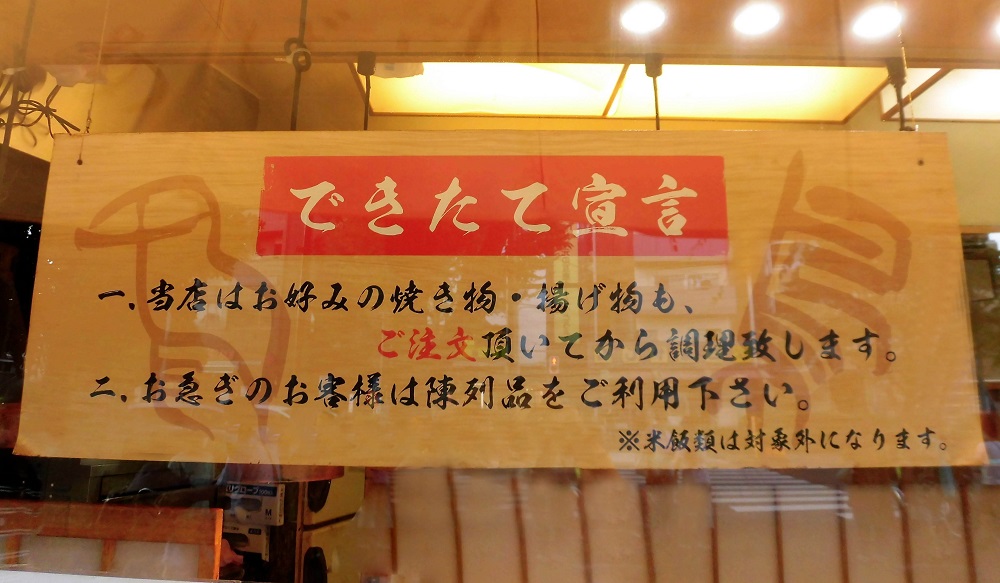 できたて宣言
一.当店はお好みの焼き物・揚げ物も、
ご注文頂いてから調理致します。
二.お急ぎのお客様は陳列品をご利用下さい。
※米飯類は対象外になります。
M